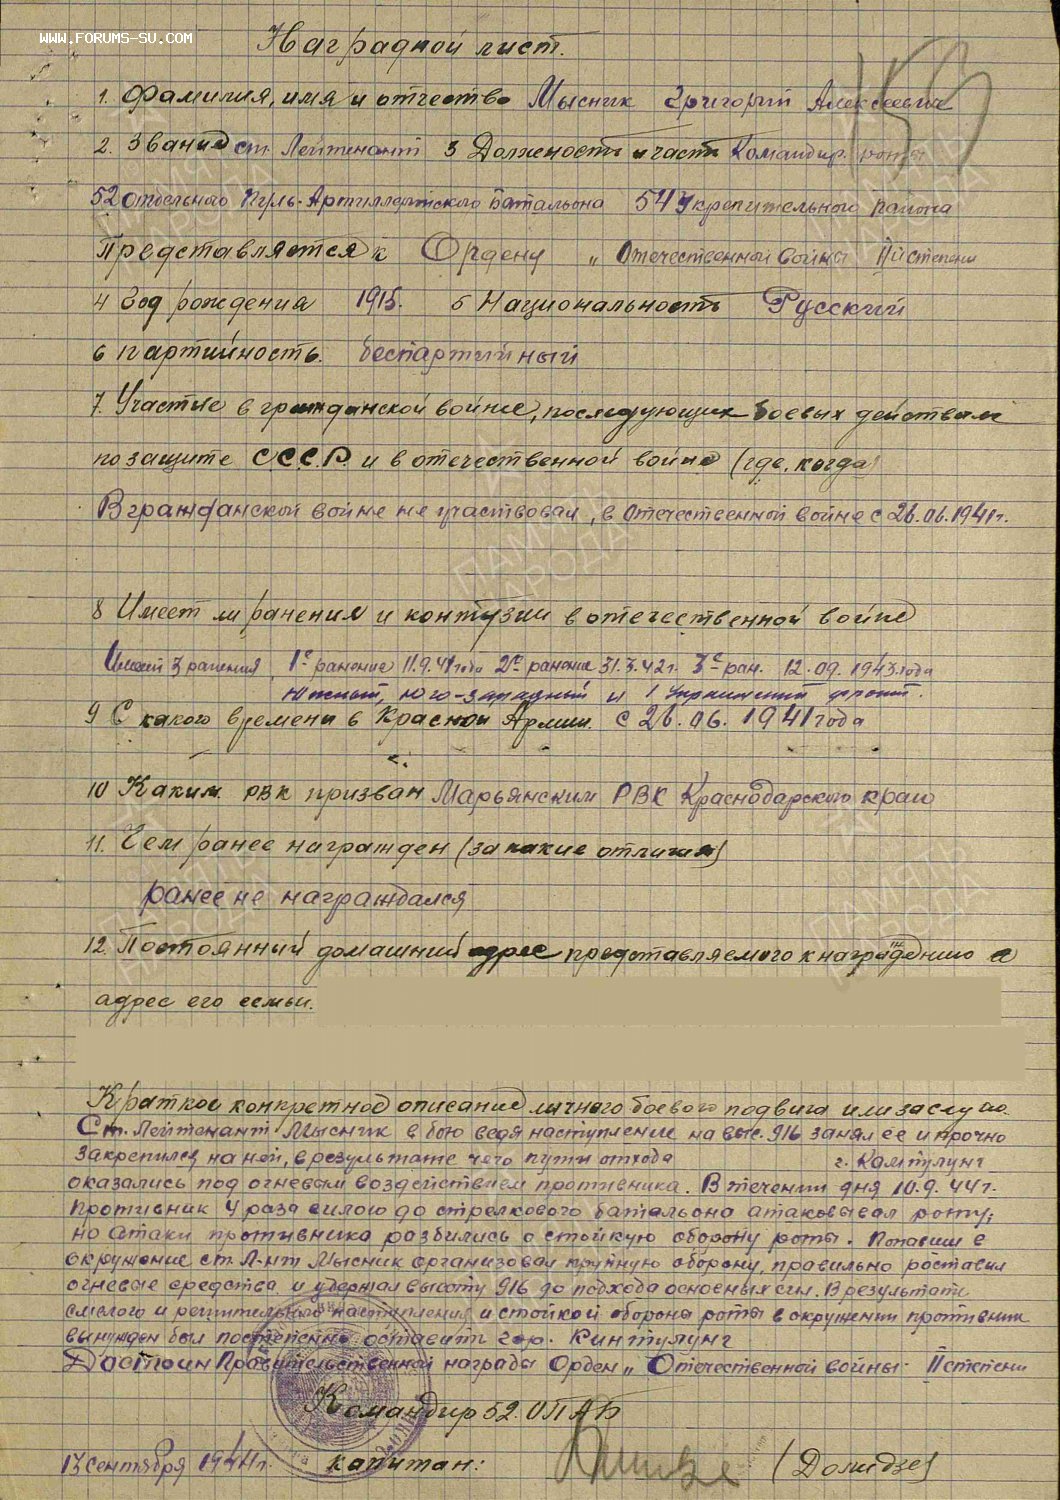 WWW.FORUMS-SU.COM
Наградной лист.
1. Фамилия, имя и отчество Мысник Григорий Алексеевич
2. Звание ст. Лейтенант 3 Должность и часть Командир роты
52 отдельного Пуль-Артиллерийского Батальона 54 Укрепительного района
Представляется к Ордену „ Отечественной войны II й степени
4 Год рождения 1915. 5 Национальность Русский
6 партийность. беспартийный
7. Участие в гражданской войне, последующих боевых действам
по защите С.С.С.Р. и в отечественной войне (где, когда)
В гражданской войне не участвовал, в Отечественной войне с 26.06.1941г.
8 Имеет ли ранения и контузии в отечественной войне
Имеет 3 ранения, 1е ранение 11.9.41 года 2е ранение 31.3.42г. 3е ран. 12.09.1943 года
Южный, Юго-западный и 1 Украинский фронт.
9 С какого времени в Красной Армии. с 26.06.1941 года
10 Каким РВК призван Марьянским РВК Краснодарского края
11. Чем ранее награжден (за какие отличия)
ранее не награждался
12. Постоянный домашний адрес представляемого к награждению и
адрес его семьи.
Краткое конкретное описание личного боевого подвига или заслуг
Ст. Лейтенант Мысник в бою ведя наступление на выс. 916 занял ее и прочно
закрепился на ней, в результате чего пути отхода г. Камтулунг
оказались под огневам воздействием противника. В течении дня 10.9.44г.
Противник 4 раза силою до стрелкового батальона атаковывал роту,
но атаки противника разбились о стойкую оборону роты. Попавши в
окружение ст. Л-нт Мысник организовал круговую оборону, правильно роставил
огневые средства и удержал высоту 916 до подхода основных сил. В результати
смелого и решительного наступления и стойкой обороны роты в окружении противник
вынужден был постепенно оставить гор. Кинтулунг
Достоин Правительственной награды Орден „ Отечественной войны II степени
Командир 52. ОПАБ
13 сентября 1944г. капитан: (Долидзе)